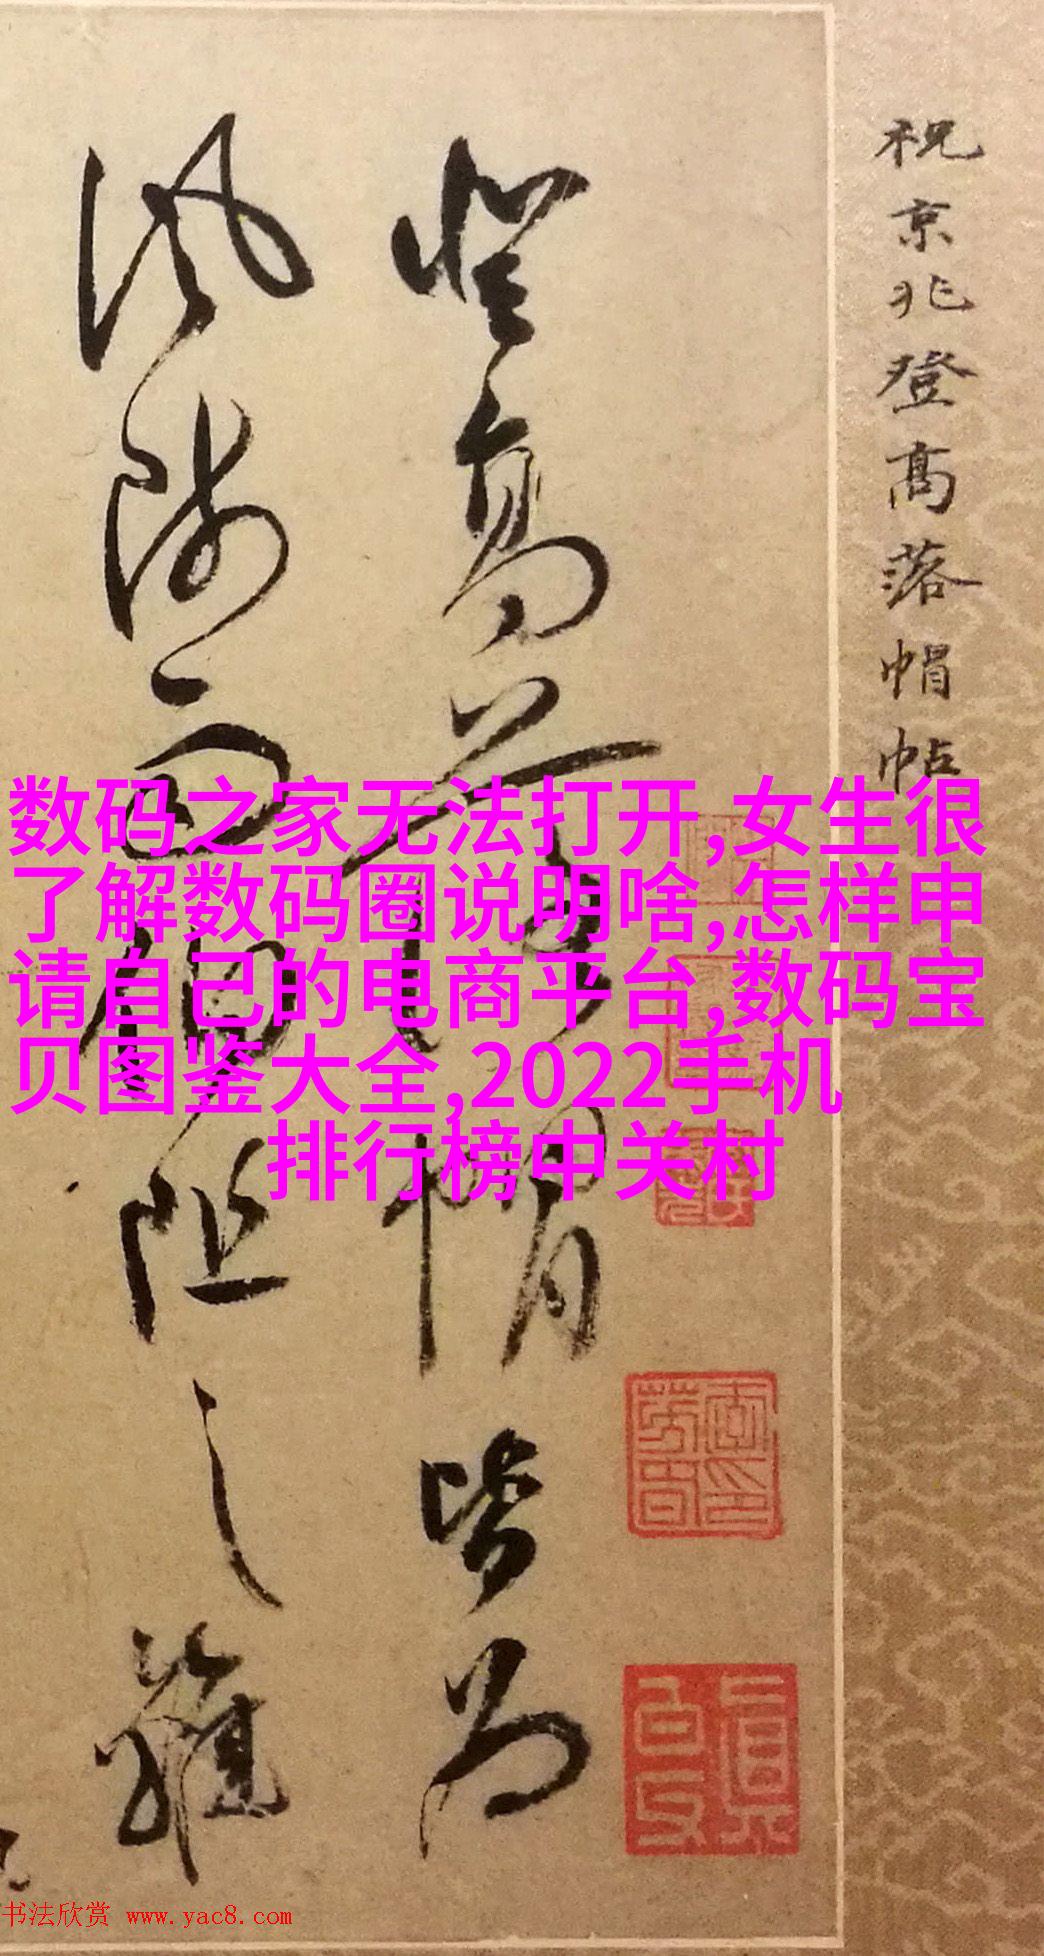 祝京兆登高落帽帖
登高 帽皆為
風 而 阻之雖
数码之家无法打开,女生很
了解数码圈说明啥,怎样申
请自己的电商平台,数码宝
贝图鉴大全,2022手机
排行榜中关村
书法欣赏 www.yac8.com